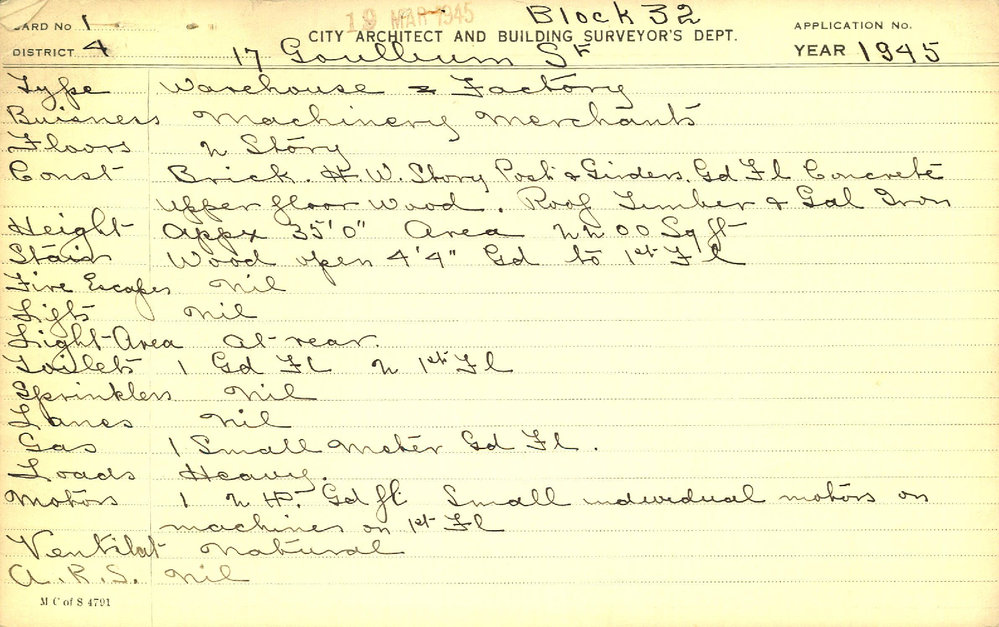 19 MAR 1945 Block 32
CARD No 1 CITY ARCHITECT AND BUILDING SURVEYOR'S DEPT. APPLICATION No.
DISTRICT 4 17 Goulburn St YEAR 1945
Type Warehouse & Factory
Buisness Machinery Merchants
Floors 2 Story
Const Brick. H.W. Story Post & Girders. Gd Fl Concrete
upper floor wood. Roof Timber & Gal Iron
Height Appx 35'0" Area 2200 Sq ft
Stairs Wood open 4'4" Gd to 1st Fl
Fire Escapes Nil
Lifts Nil
Light-Area at rear.
Toilets 1 Gd Fl 2 1st Fl
Sprinklers Nil
Lanes Nil
Gas 1 Small Meter Gd Fl.
Loads Heavy.
Motors 1 2 HP. Gd fl. Small individual motors on
machines on 1st Fl
Ventilat Natural
A.R.S. Nil
M C of S 4791